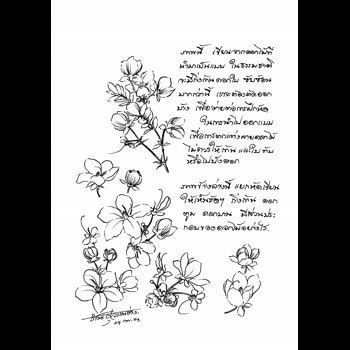 ภาพนี้ เขียนจากดอกไม้ที่
นำมาเป็นแบบ ในธรรมชาติ
จะมีกิ่งก้าน ดอกใบ ซับซ้อน
มากกว่านี้ เราจะต้องตัดออก
บ้าง เพื่อง่ายต่อการฝึกหัด
ในการนำไปออกแบบ
เพื่อการตกแต่งลายดอกไม้
ไม่ควรให้ก้านและใบทับ
หรือไปบังดอก
ภาพข้างล่างนี้ แยกหัดเขียน
ให้เห็นชัดๆ กิ่งก้าน ดอก
ตูม ดอกบาน มีส่วนประ
กอบของดอกไม้อย่างไร.